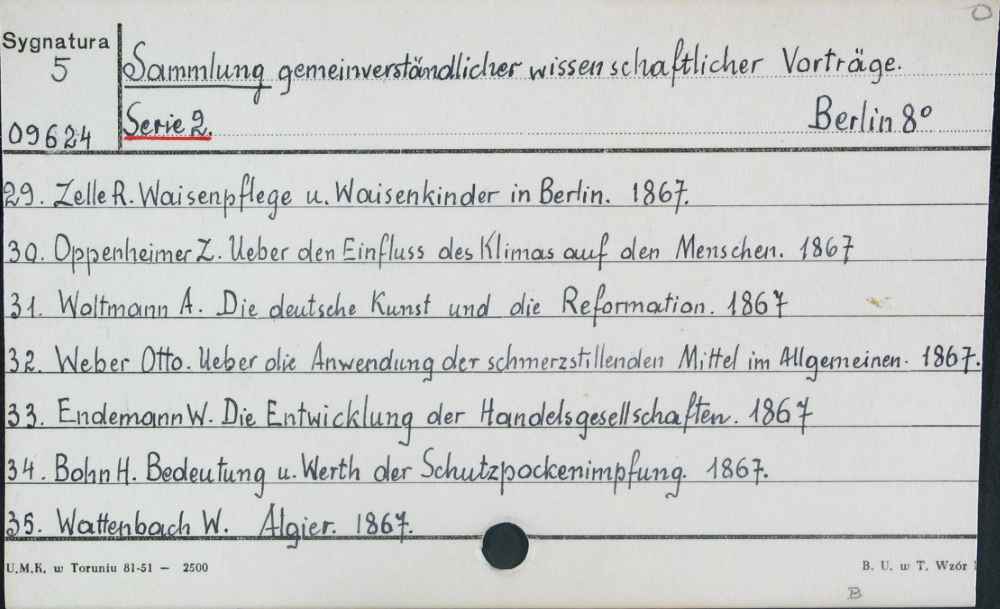 Sygnatura
5
09624
Sammlung gemeinverständlicher wissenschaftlicher Vorträge.
Serie 2.
Berlin 8°
29. Zelle R. Waisenpflege u. Waisenkinder in Berlin. 1867.
30. Oppenheimer Z. Ueber den Einfluss des Klimas auf den Menschen. 1867
31. Woltmann A. Die deutsche Kunst und die Reformation. 1867
32. Weber Otto. Ueber die Anwendung der schmerzstillenden Mittel im Allgemeinen. 1867.
33. Endemann W. Die Entwicklung der Handelsgesellschaften. 1867
34. Bohn H. Bedeutung u. Werth der Schutzpockenimpfung. 1867.
35. Wattenbach W. Algier. 1867.
U.M.K. w Toruniu 81-51 — 2500
B. U. w T. Wzór
B